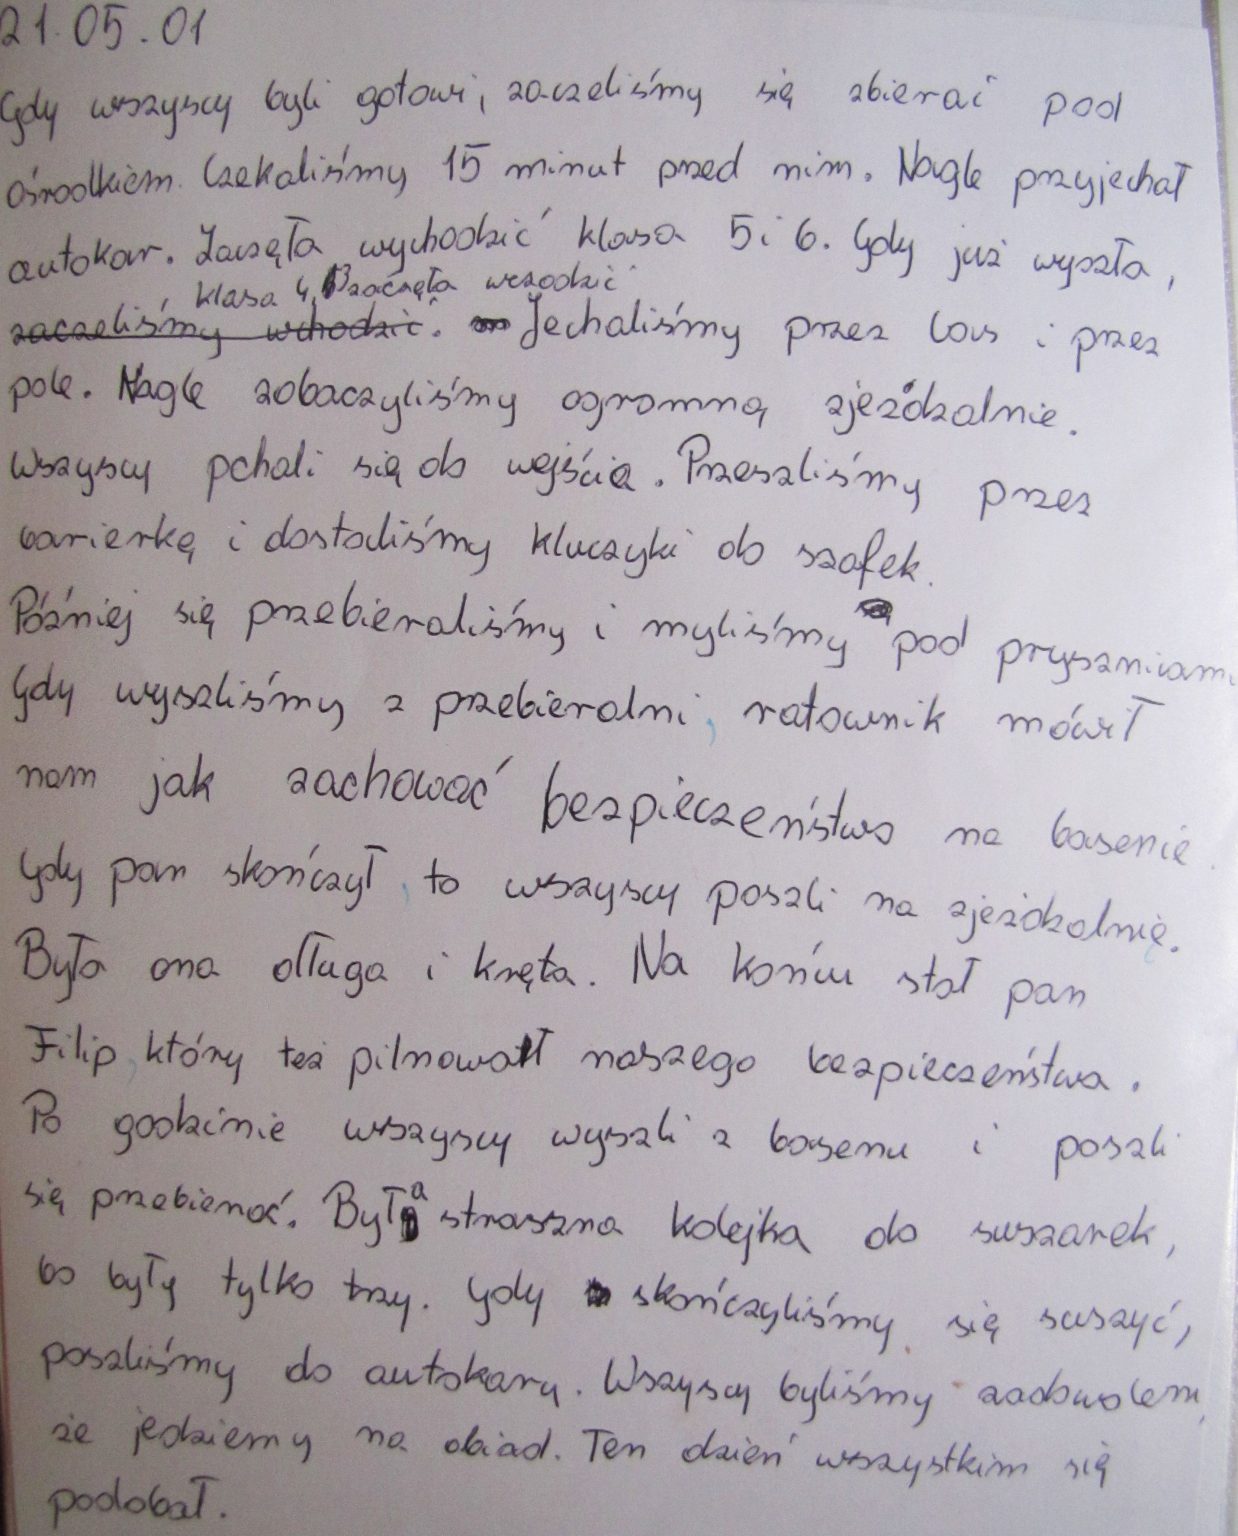 21.05.01
Gdy wszyscy byli gotowi, zaczeliśmy się zbierać pod
ośrodkiem. Czekaliśmy 15 minut przed nim. Nagle przyjechał
autokar. Zaczęła wychodzić klasa 5 i 6. Gdy już wyszła,
klasa 4, B zaczęła wchodzić
zaczeliśmy wchodzić. Jechaliśmy przez las i przez
pole. Nagle zobaczyliśmy ogromną zjeżdzalnie.
Wszyscy pchali się do wejścia. Przeszliśmy przez
barierkę i dostaliśmy kluczyki do szafek.
Później się przebieraliśmy i myliśmy pod pryszniciami
Gdy wyszliśmy z przebieralni, ratownik mówił
nam jak zachować bezpieczeństwo na basenie.
Gdy pan skończył, to wszyscy poszli na zjeżdzalnię.
Była ona długa i kręta. Na końcu stał pan
Filip, który też pilnował naszego bezpieczeństwa.
Po godzinie wszyscy wyszli z basenu i poszli
się przebierać. Była straszna kolejka do suszarek,
bo były tylko trzy. Gdy skończyliśmy się suszyć,
poszliśmy do autokaru. Wszyscy byliśmy zadowoleni,
że jedziemy na obiad. Ten dzień wszystkim się
podobał.